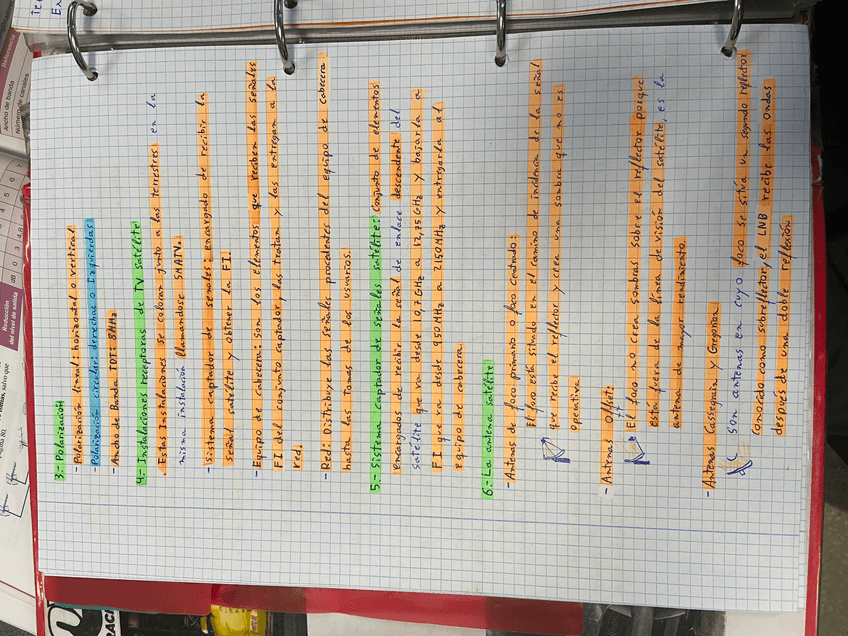 3.- Polarización
- Polarización lineal: horizontal o vertical
- Polarización circular: derechas o Izquierdas
- Ancho de Banda TDT: 8MHz
4.- Instalaciones receptoras de TV satélite
Estas Instalaciones se colocan junto a las terrestres en la
misma instalación llamandose SMATV.
Sistema captador de señales: encargado de recibir la
señal satélite y obtener la FI.
- Equipo de cabecera: son los elementos que reciben las señales
FI del conjunto captador, las tratan y las entregan a la
red.
- Red: Distribuye las señales procedentes del equipo de cabecera
hasta las tomas de los usuarios.
5.- Sistema captador de señales satélite: conjunto de elementos
encargados de recibir la señal de enlace descendente del
satélite que va desde 10,7GHz a 12,75GHz y basarla a
FI que va desde 950MHz a 2150MHz y entregarla al
equipo de cabecera.
6.- La antena satélite
- Antenas de foco primario o foco centrado:
El foco está situado en el camino de incidencia de la señal
que recibe el reflector y crea una sombra que no es
operativa
- Antenas Offset:
El foco no crea sombras sobre el reflector porque
está fuera de la línea de visión del satélite, es la
antena de mayor rendimiento.
- Antenas Cassegrain y Gregorian
son antenas en cuyo foco se sitúa un segundo reflector
conocido como subreflector, el LNB recibe las ondas
después de una doble reflexión.
Ancho de banda
Número de canales
Reducción
del nivel de salida
dB